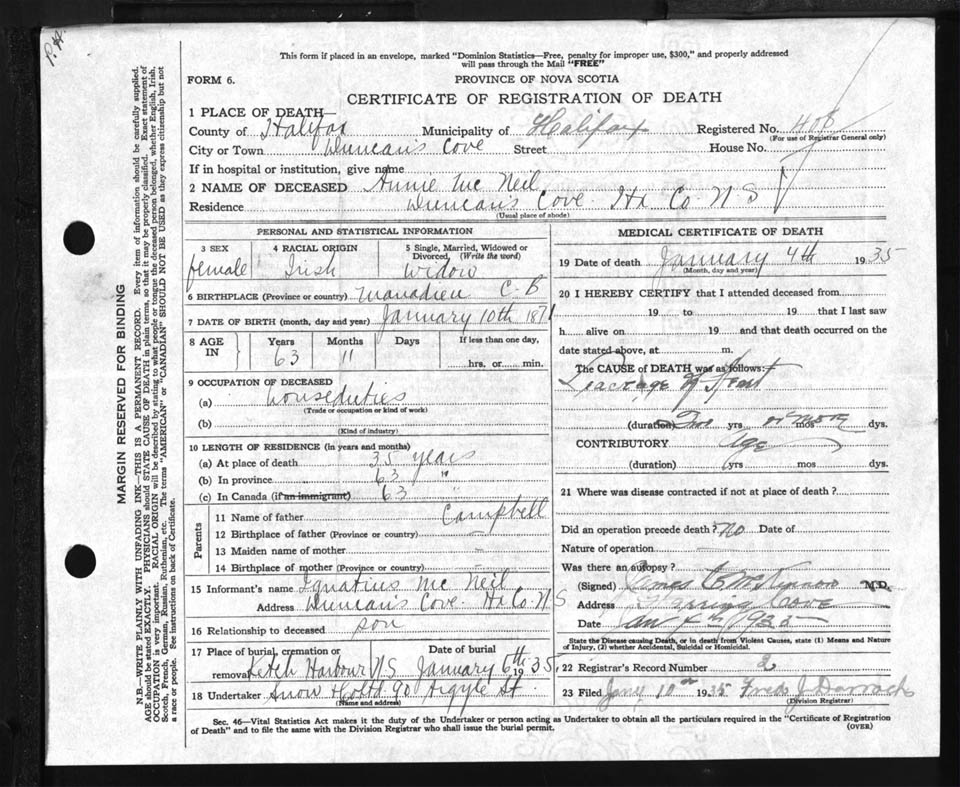 This form if placed in an envelope, marked "Dominion Statistics—Free, penalty for improper use, $300," and properly addressed
will pass through the Mail "FREE"
FORM 6.
PROVINCE OF NOVA SCOTIA
CERTIFICATE OF REGISTRATION OF DEATH
1 PLACE OF DEATH—
County of Halifax Municipality of Halifax Registered No. 408
(For use of Registrar General only)
City or Town Duncan's Cove Street House No.
If in hospital or institution, give name
2 NAME OF DECEASED Annie Mc Neil
Residence Duncan's Cove Hx Co. N S
(Usual place of abode)
PERSONAL AND STATISTICAL INFORMATION
3 SEX 4 RACIAL ORIGIN 5 Single, Married, Widowed or
Divorced, (Write the word)
female Irish widow
6 BIRTHPLACE (Province or country) Manadieu C. B
7 DATE OF BIRTH (month, day and year) January 10th 1871
8 AGE IN Years Months Days If less than one day,
63 11 hrs. or min.
9 OCCUPATION OF DECEASED
(a) houseduties
(Trade or occupation or kind of work)
(b)
(Kind of industry)
10 LENGTH OF RESIDENCE (in years and months)
(a) At place of death 35 years
(b) In province 63 "
(c) In Canada (if an immigrant) 63 "
Parents
11 Name of father Campbell
12 Birthplace of father (Province or country)
13 Maiden name of mother
14 Birthplace of mother (Province or country)
15 Informant's name Ignatius Mc Neil
Address Duncan's Cove. Hx Co. N S
16 Relationship to deceased son
17 Place of burial, cremation or Date of burial
removal Ketch Harbour N S. January 6th 1935
18 Undertaker Snow 90 Argyle St.
(Name and address)
MEDICAL CERTIFICATE OF DEATH
19 Date of death January 4th 1935
(Month, day and year)
20 I HEREBY CERTIFY that I attended deceased from
19 to 19 that I last saw
h alive on 19 and that death occurred on the
date stated above, at m.
The CAUSE of DEATH was as follows:
of Heart
(duration) Two yrs or mos more dys.
CONTRIBUTORY Age
(duration) yrs mos dys.
21 Where was disease contracted if not at place of death?
Did an operation precede death? No Date of
Nature of operation
Was there an autopsy?
(Signed) James C McKinnon M.D.
Address Herring Cove
Date Jan 4th 1935
State the Disease causing Death, or in death from Violent Causes, state (1) Means and Nature
of Injury, (2) whether Accidental, Suicidal or Homicidal.
22 Registrar's Record Number 2
23 Filed Jany 10th 1935 Fred J Darrach
(Division Registrar)
Sec. 46—Vital Statistics Act makes it the duty of the Undertaker or person acting as Undertaker to obtain all the particulars required in the "Certificate of Registration
of Death" and to file the same with the Division Registrar who shall issue the burial permit.
(OVER)
MARGIN RESERVED FOR BINDING
N.B.—WRITE PLAINLY WITH UNFADING INK—THIS IS A PERMANENT RECORD. Every item of information should be carefully supplied.
AGE should be stated EXACTLY. PHYSICIANS should STATE CAUSE OF DEATH in plain terms, so that it may be properly classified. Exact statement of
OCCUPATION is very important. RACIAL ORIGIN will be described by stating to what people or tongue the deceased person belonged, whether English, Irish,
Scotch, French, German, Russian, Ruthenian, etc. The terms "AMERICAN" or "CANADIAN" SHOULD NOT BE USED as they express citizenship but not
a race or people. See instructions on back of Certificate.